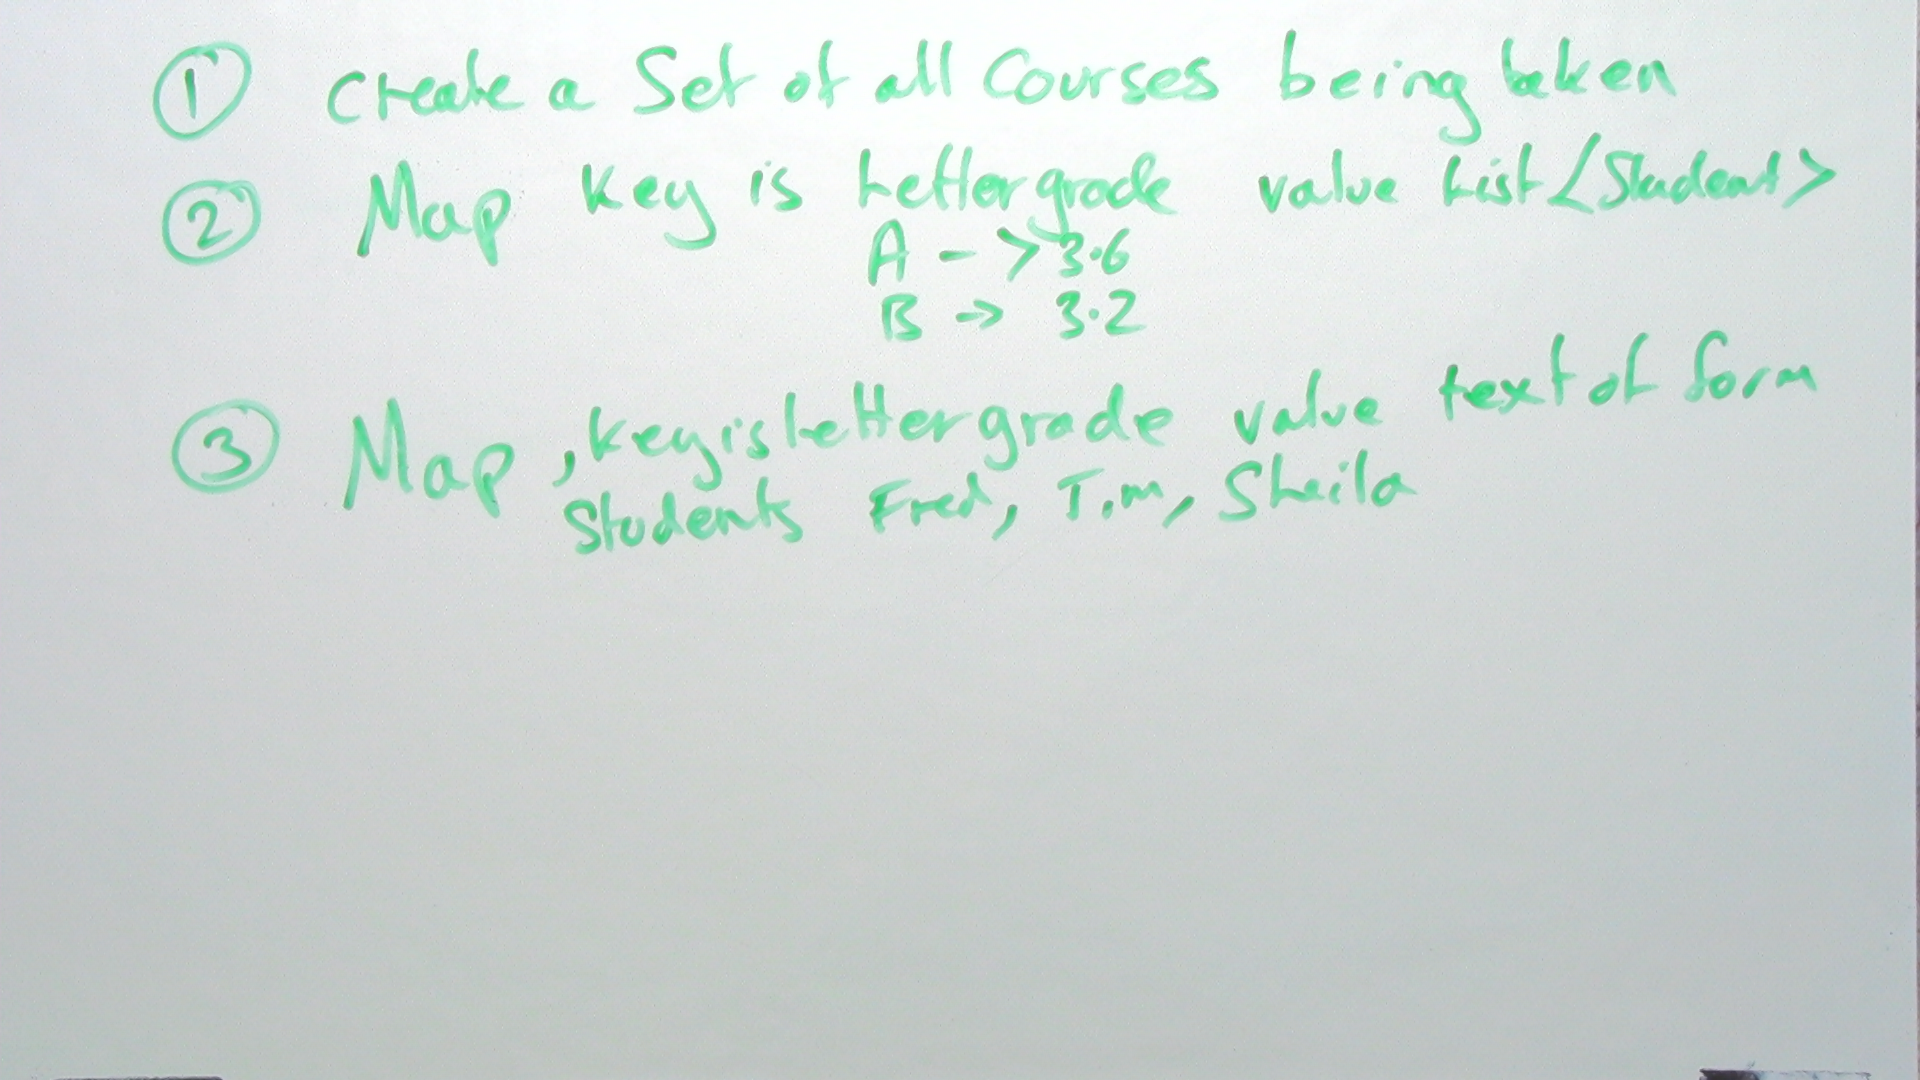 ① Create a Set of all Courses being taken
② Map Key is Letter grade value List<Student>
A -> 3.6
B → 3.2
③ Map, key is letter grade value text of form
Students Fred, Tim, Sheila